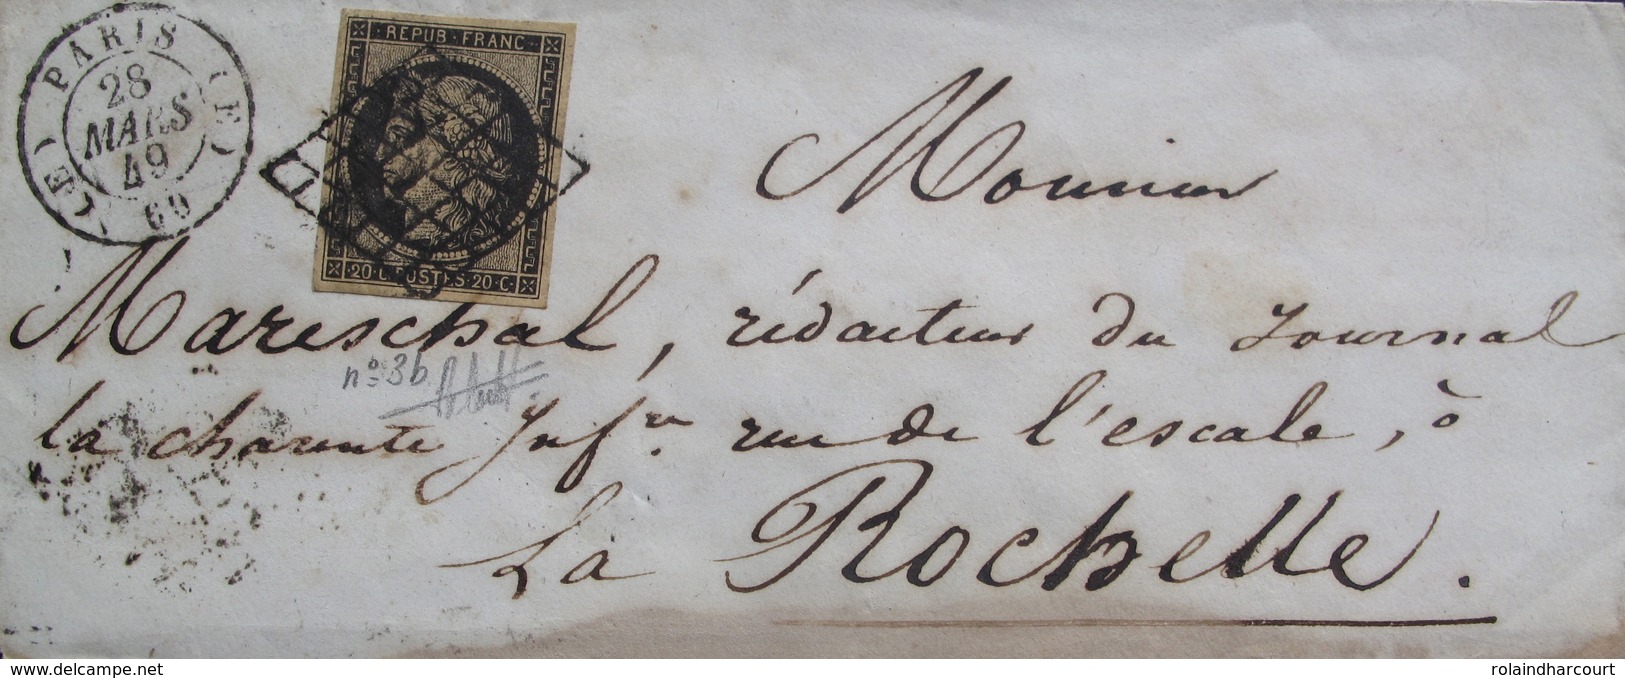 PARIS
(E) (E)
28
MARS
49
60
REPUB · FRANC
20 C · POSTES · 20 C
Monsieur
Mareschal, rédacteur du Journal
n° 3b
la charente Infre. rue de l'escale, à
La Rochelle.
www.delcampe.net
rolaindharcourt